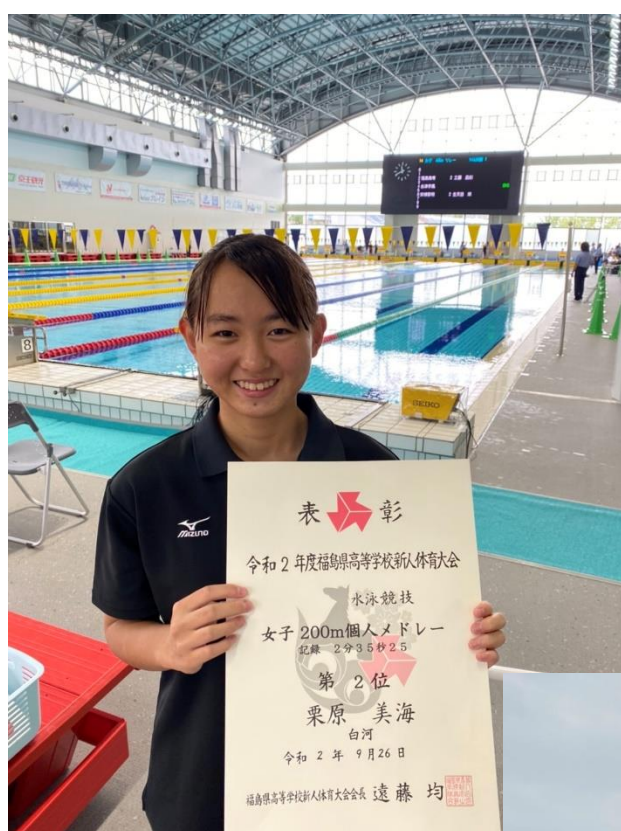 8
SEIKO
MIZUNO
表彰
令和2年度福島県高等学校新人体育大会
水泳競技
女子 200m個人メドレー
記録 2分35秒25
第 2位
栗原 美海
白河
令和 2 年 9月26日
福島県高等学校新人体育大会会長 遠藤 均